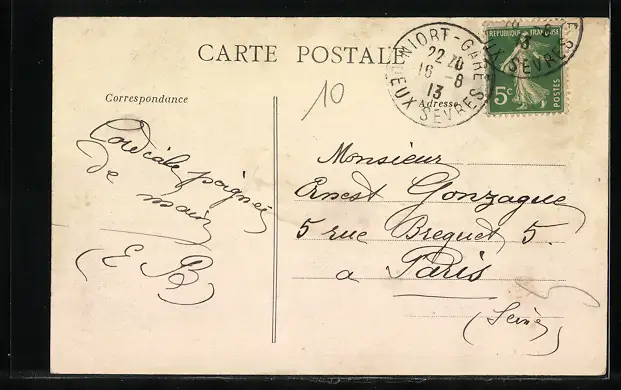 CARTE POSTALE
NIORT-GARE
22 30
16 - 8
13
DEUX SEVRES
REPUBLIQUE FRANÇAISE
5c
POSTES
X SEVRES
10
Correspondance
Adresse
Cordiale poignée
de main
(E B)
Monsieur
Ernest Gonzague
5 rue Breguet, 5.
a Paris
(Seine)